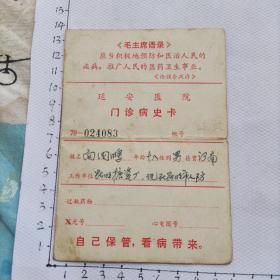 《毛主席语录》
应当积极地预防和医治人民的
疾病，推广人民的医药卫生事业。
《论联合政府》
延安医院
门诊病史卡
70-024083 帐号
姓名 向国鸣 年龄 性别 男 籍贯 河南
工作单位
过敏药物
X光号 心电图号
自己保管，看病带来。